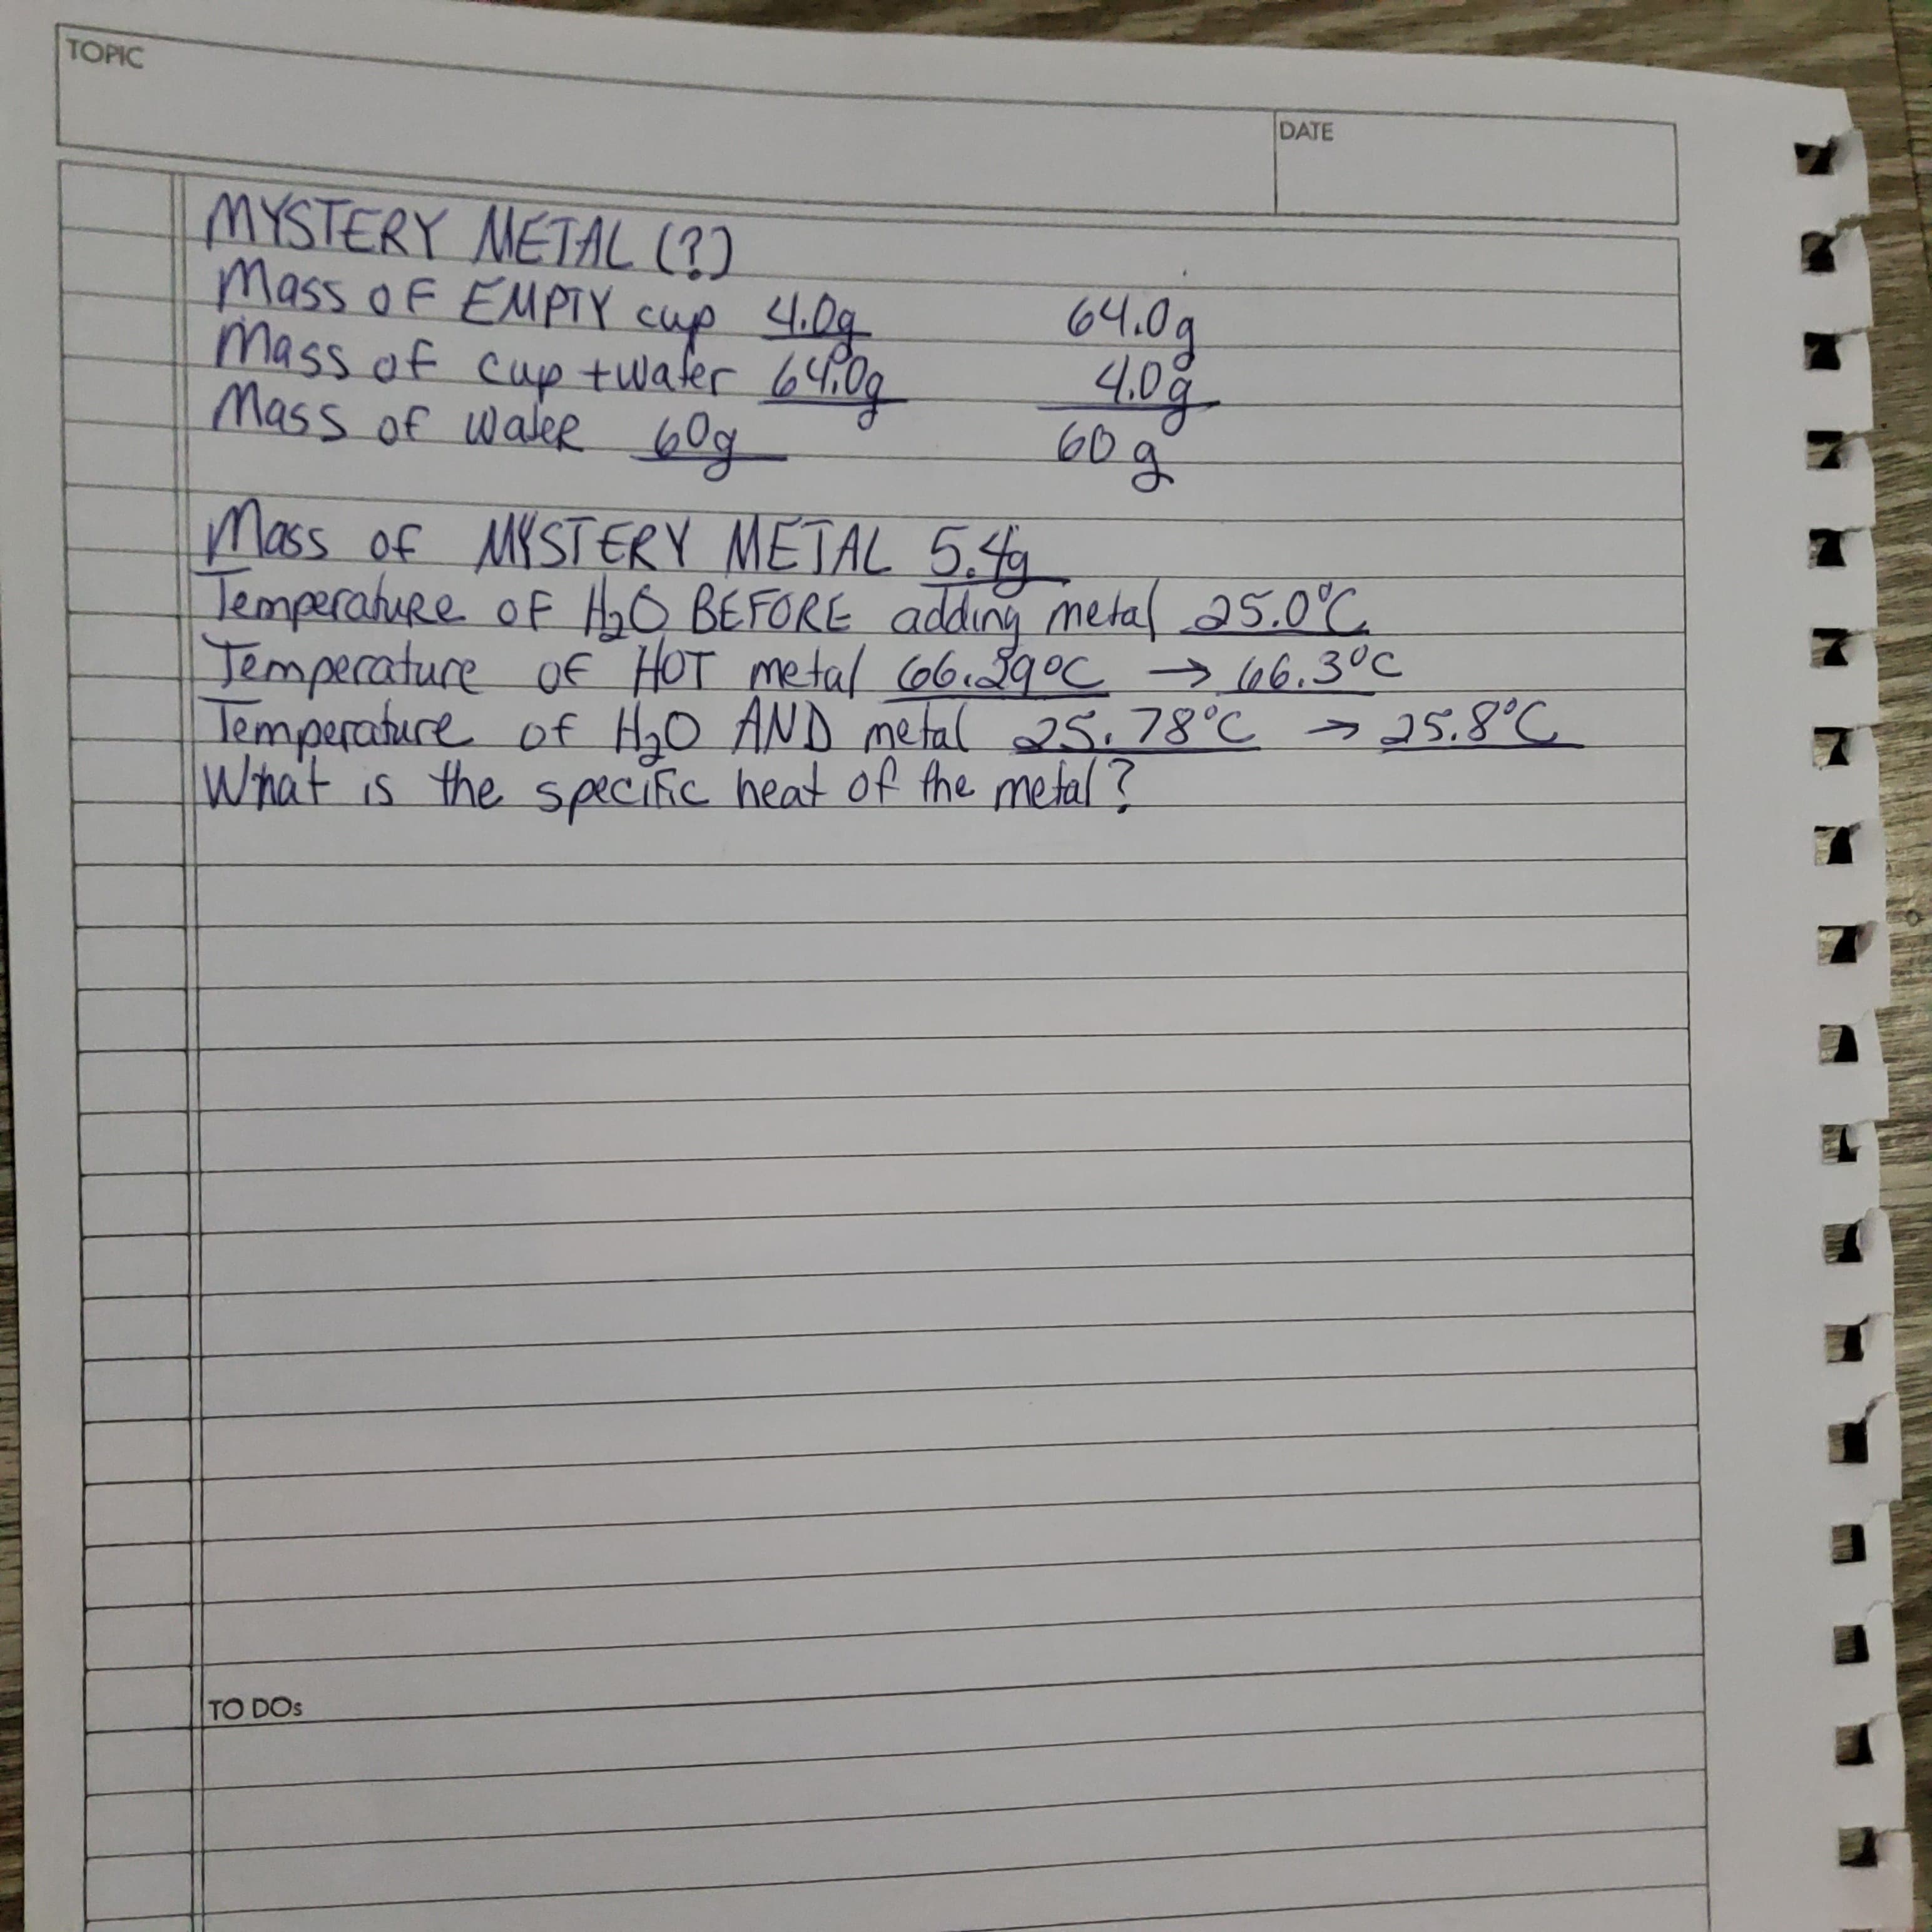 TOPIC
DATE
MYSTERY METAL (?)
Mass of EMPTY cup 4.0g 64.0g
Mass of cup + water 64.0g 4.0g
Mass of water 60g 60g
Mass of MYSTERY METAL 5.4g
Temperature of H₂O BEFORE adding metal 25.0°C
Temperature of HOT metal 66.29°C → 66.3°C
Temperature of H₂O AND metal 25.78°C → 25.8°C
What is the specific heat of the metal?
TO DOs